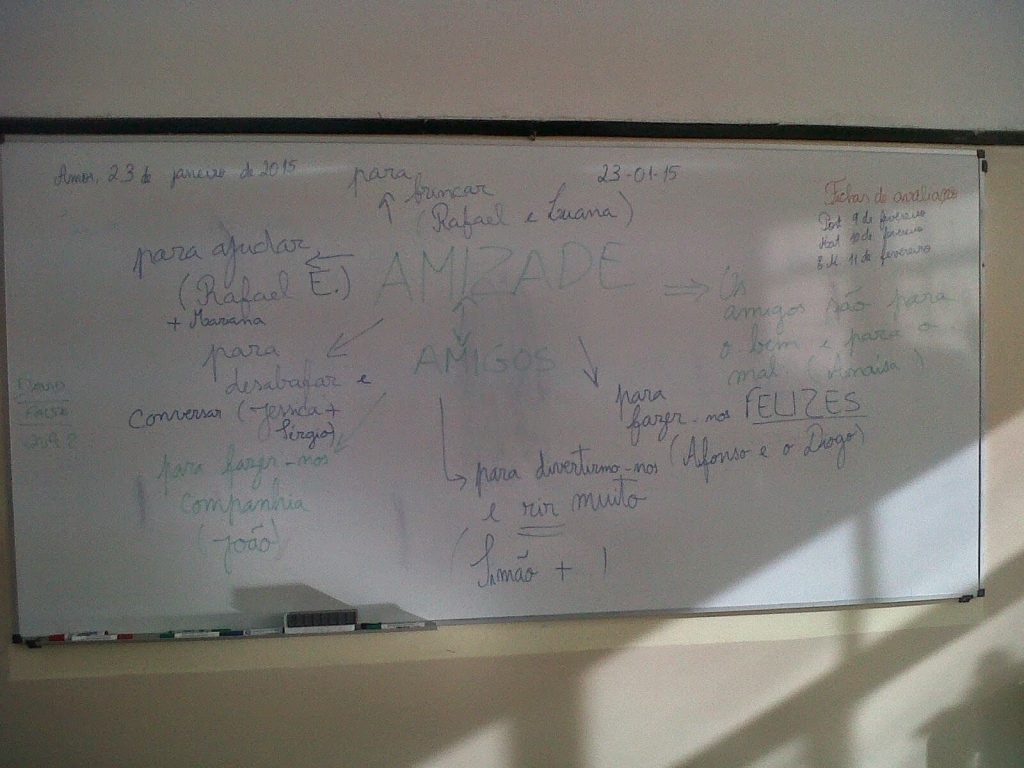 Amor, 23 de janeiro de 2015
23-01-15
para
brincar
(Rafael e Luana)
Fichas de avaliação
Port 9 de fevereiro
Mat 10 de fevereiro
E.M 11 de fevereiro
para ajudar
(Rafael E.)
+ Mariana
AMIZADE
AMIGOS
Os
amigos são para
o bem e para o
mal. (Anaísa)
para
desabafar e
conversar (Jessica +
Sérgio)
para fazer-nos
companhia
(João)
para
fazer-nos FELIZES
(Afonso e o Diogo)
para divertirmo-nos
e rir muito
(Simão + )